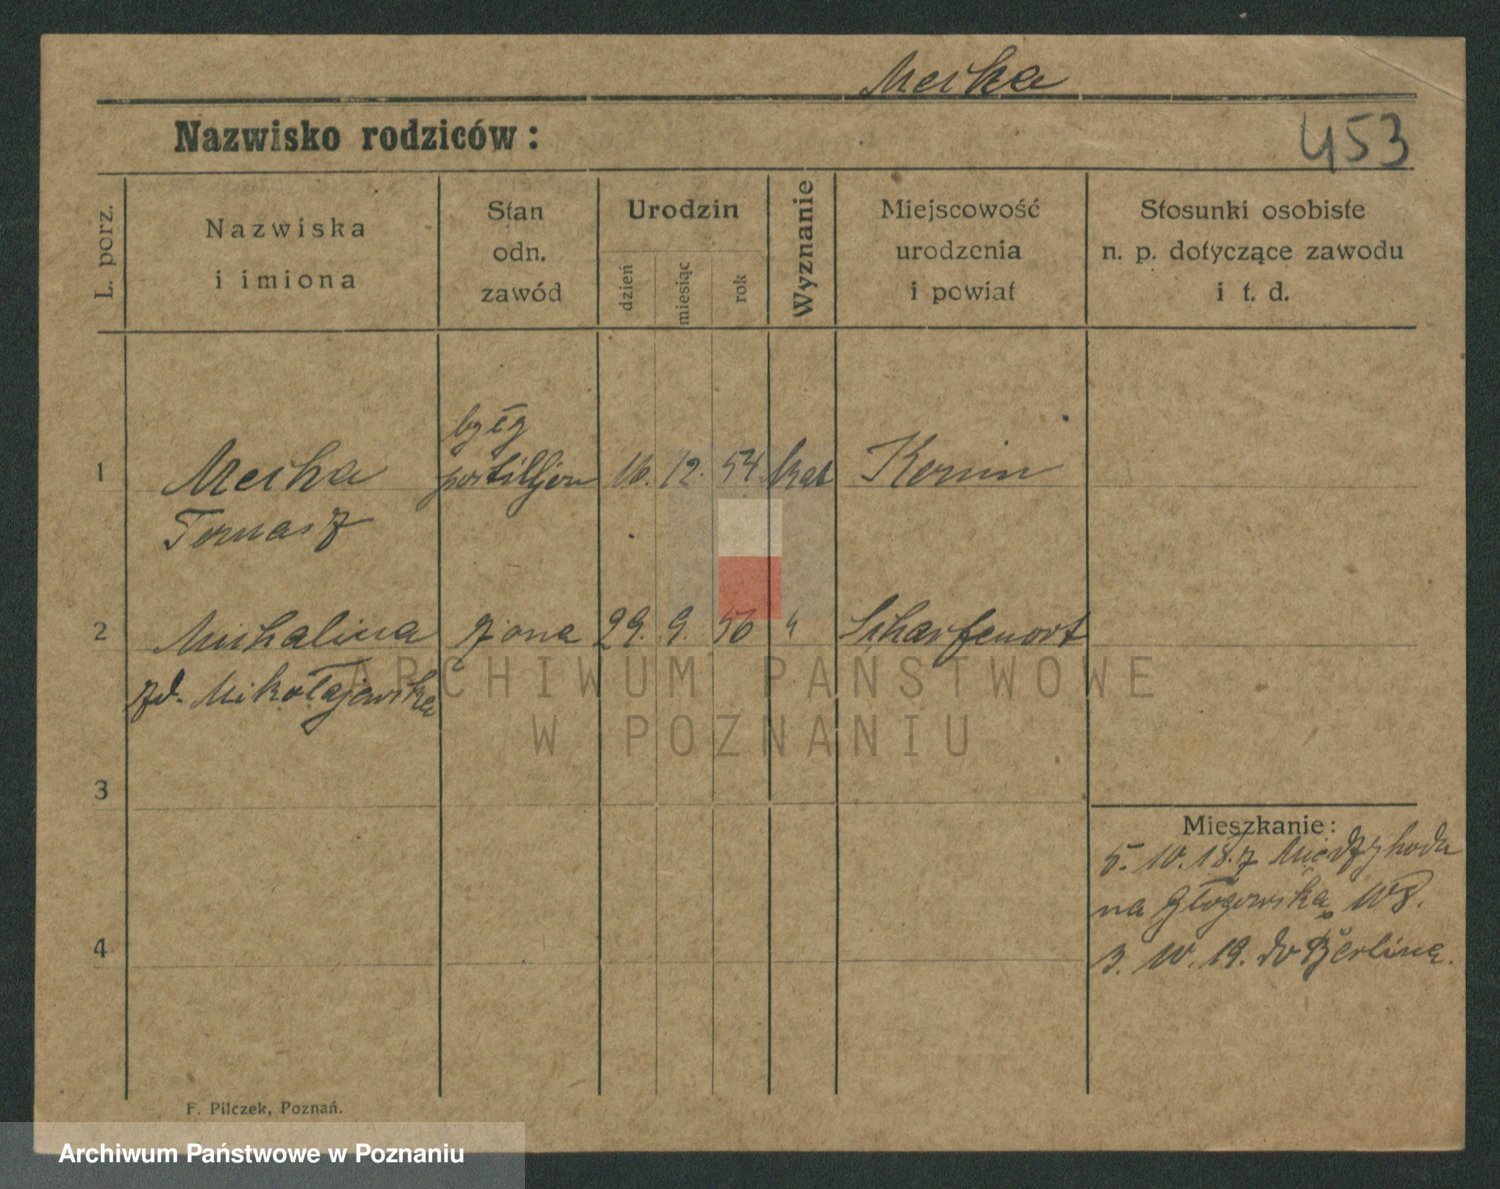 Meika
Nazwisko rodziców:
453
L. porz.
Nazwiska
i imiona
Stan
odn.
zawód
Urodzin
dzień
miesiąc
rok
Wyznanie
Miejscowość
urodzenia
i powiat
Stosunki osobiste
n. p. dotyczące zawodu
i t. d.
były
1 Meika postilljon 16. 12. 54. kat Konin
Tomasz
2 Michalina żona 29. 9. 56 " Scharfenort
zd. Mikołajewska
ARCHIWUM PAŃSTWOWE
W POZNANIU
3
Mieszkanie:
5. 10. 18. z Międzychodu
na Głogowską 108.
4
3. 10. 19. do Berlina.
F. Pilczek, Poznań.
Archiwum Państwowe w Poznaniu